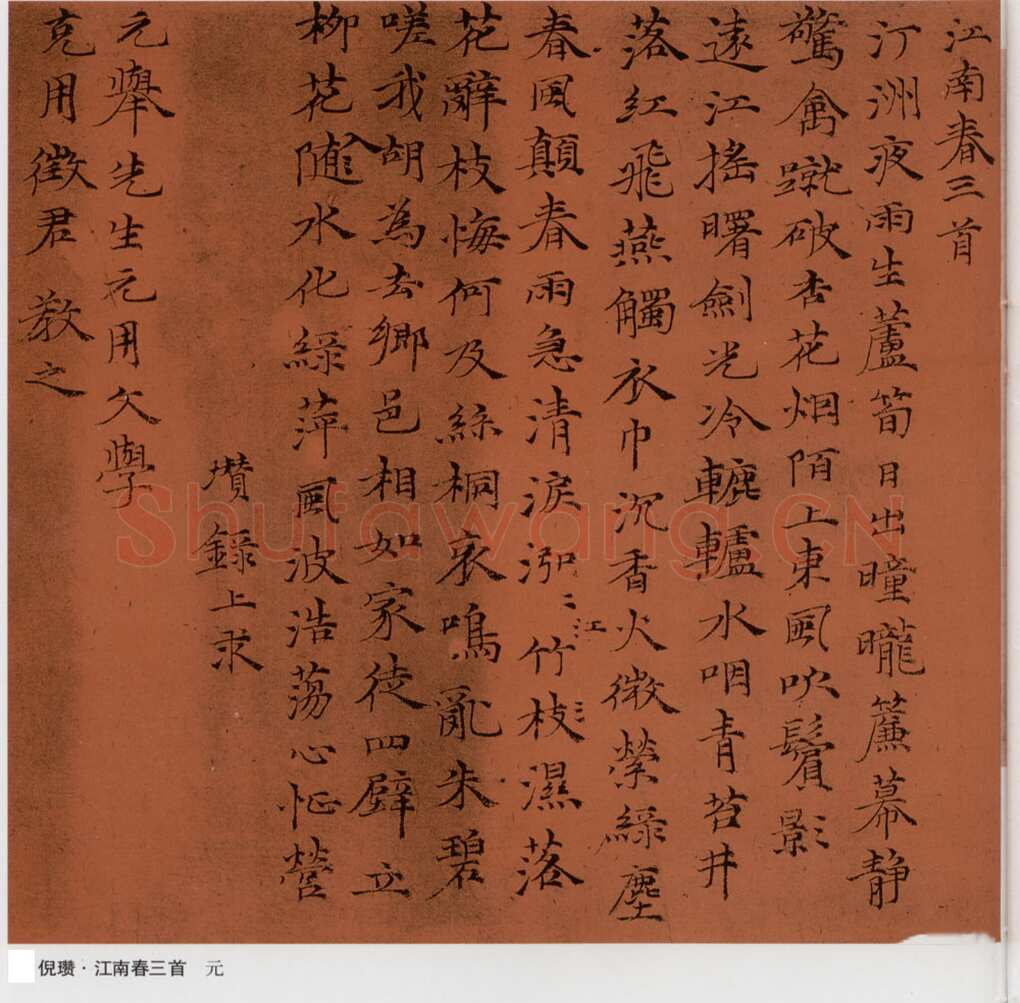 江南春三首
汀洲夜雨生蘆筍日出曈曨簾幕静
驚禽蹴破杏花烟陌上東風吹鬢影
遠江搖曙劍光冷轆轤水咽青苔井
落紅飛燕觸衣巾沉香火微縈綠塵
春風顛春雨急清淚泓〻江竹枝〻濕落
花辭枝悔何及絲桐哀鳴亂朱碧
嗟我胡為去鄉邑相如家徒四壁立
柳花入隨水化綠萍風波浩蕩心怔營
瓚錄上求
元舉先生元用文學
克用徵君 教之
Shufawang.CN
倪瓒·江南春三首 元